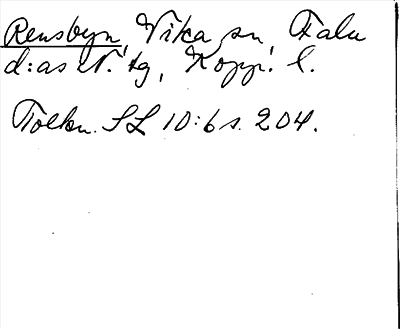 Rensbyn, Vika sn, Falu
d:as N. tg, Kopp. l.
Tolkn. SL 10:6 s. 204.